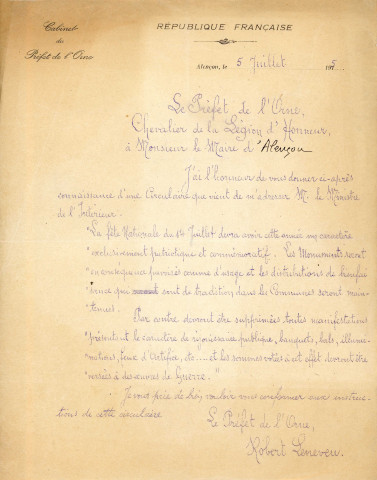 Cabinet
du
Préfet de l'Orne
RÉPUBLIQUE FRANÇAISE
Alençon, le 5 Juillet 1915.
Le Préfet de l'Orne,
Chevalier de la Légion d'Honneur,
à Monsieur le Maire d'Alençon
J'ai l'honneur de vous donner ci-après
connaissance d'une Circulaire que vient de m'adresser M. le Ministre
de l'Intérieur.
"La fête Nationale du 14 Juillet devra avoir cette année un caractère
"exclusivement patriotique et commémoratif. Les Monuments seront
"en conséquence pavoisés comme d'usage et les distributions de bienfai
"sance qui sont de tradition dans les Communes seront main-
"tenues.
"Par contre devront être supprimées toutes manifestations
"présentant le caractère de réjouissance publique, banquets, bals, illumi-
"nations, feux d'artifice, etc... et les sommes votées à cet effet devront être
"versées à des œuvres de Guerre."
Je vous prie de bien vouloir vous conformer aux instruc-
tions de cette circulaire
Le Préfet de l'Orne,
Robert Leneveu.